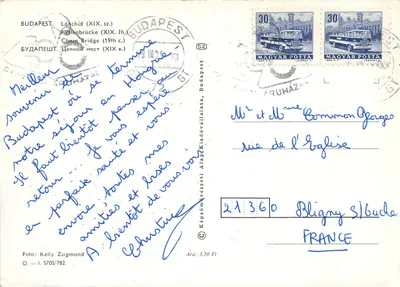 BUDAPEST Lánchíd (XIX. sz.)
Kettenbrücke (XIX. Jh.)
Chain Bridge (19th c.)
БУДАПЕШТ. Цепной мост (XIX в.)
BUDAPEST
30
MAGYAR POSTA
30
MAGYAR POSTA
Meilleur
souvenir de
Budapest où se termine
notre séjour en Hongrie.
Il faut bientôt penser au
retour... Je vous espère
en parfaite santé et vous
envoie toutes mes
amitiés et bises
A bientôt de vous voir
Christine
Képzőművészeti Alap Kiadóvállalata, Budapest
Mr et Mme Common Georges
rue de l'Eglise
21360
Bligny s/Ouche
FRANCE
Foto: Kelly Zugmond
O. — I. 5705/782.
Ára: 3,50 Ft